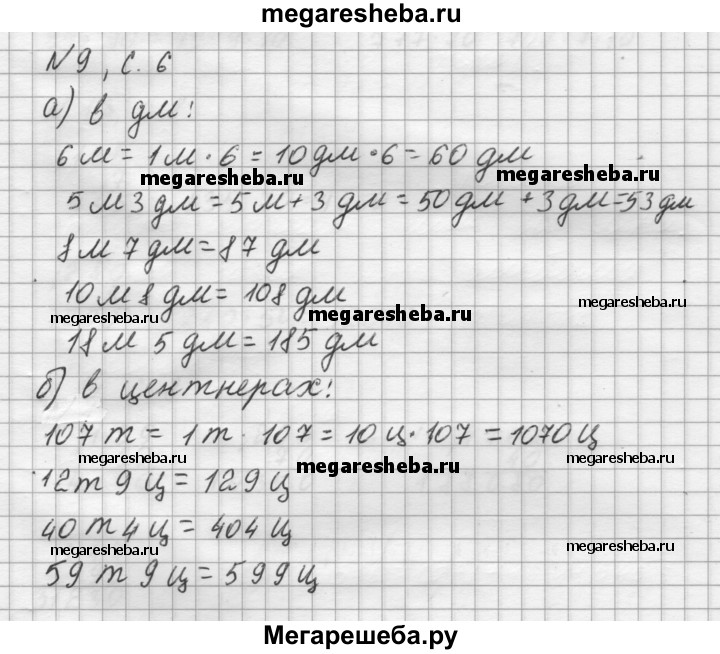 megaresheba.ru
№9, с. 6
а) в дм:
6 м = 1 м · 6 = 10 дм · 6 = 60 дм
megaresheba.ru megaresheba.ru
5 м 3 дм = 5 м + 3 дм = 50 дм + 3 дм = 53 дм
8 м 7 дм = 87 дм
10 м 8 дм = 108 дм
megaresheba.ru megaresheba.ru megaresheba.ru
18 м 5 дм = 185 дм
б) в центнерах:
107 т = 1 т · 107 = 10 ц · 107 = 1070 ц
megaresheba.ru megaresheba.ru megaresheba.ru
12 т 9 ц = 129 ц
40 т 4 ц = 404 ц
megaresheba.ru megaresheba.ru
59 т 9 ц = 599 ц
Мегарешеба.ру